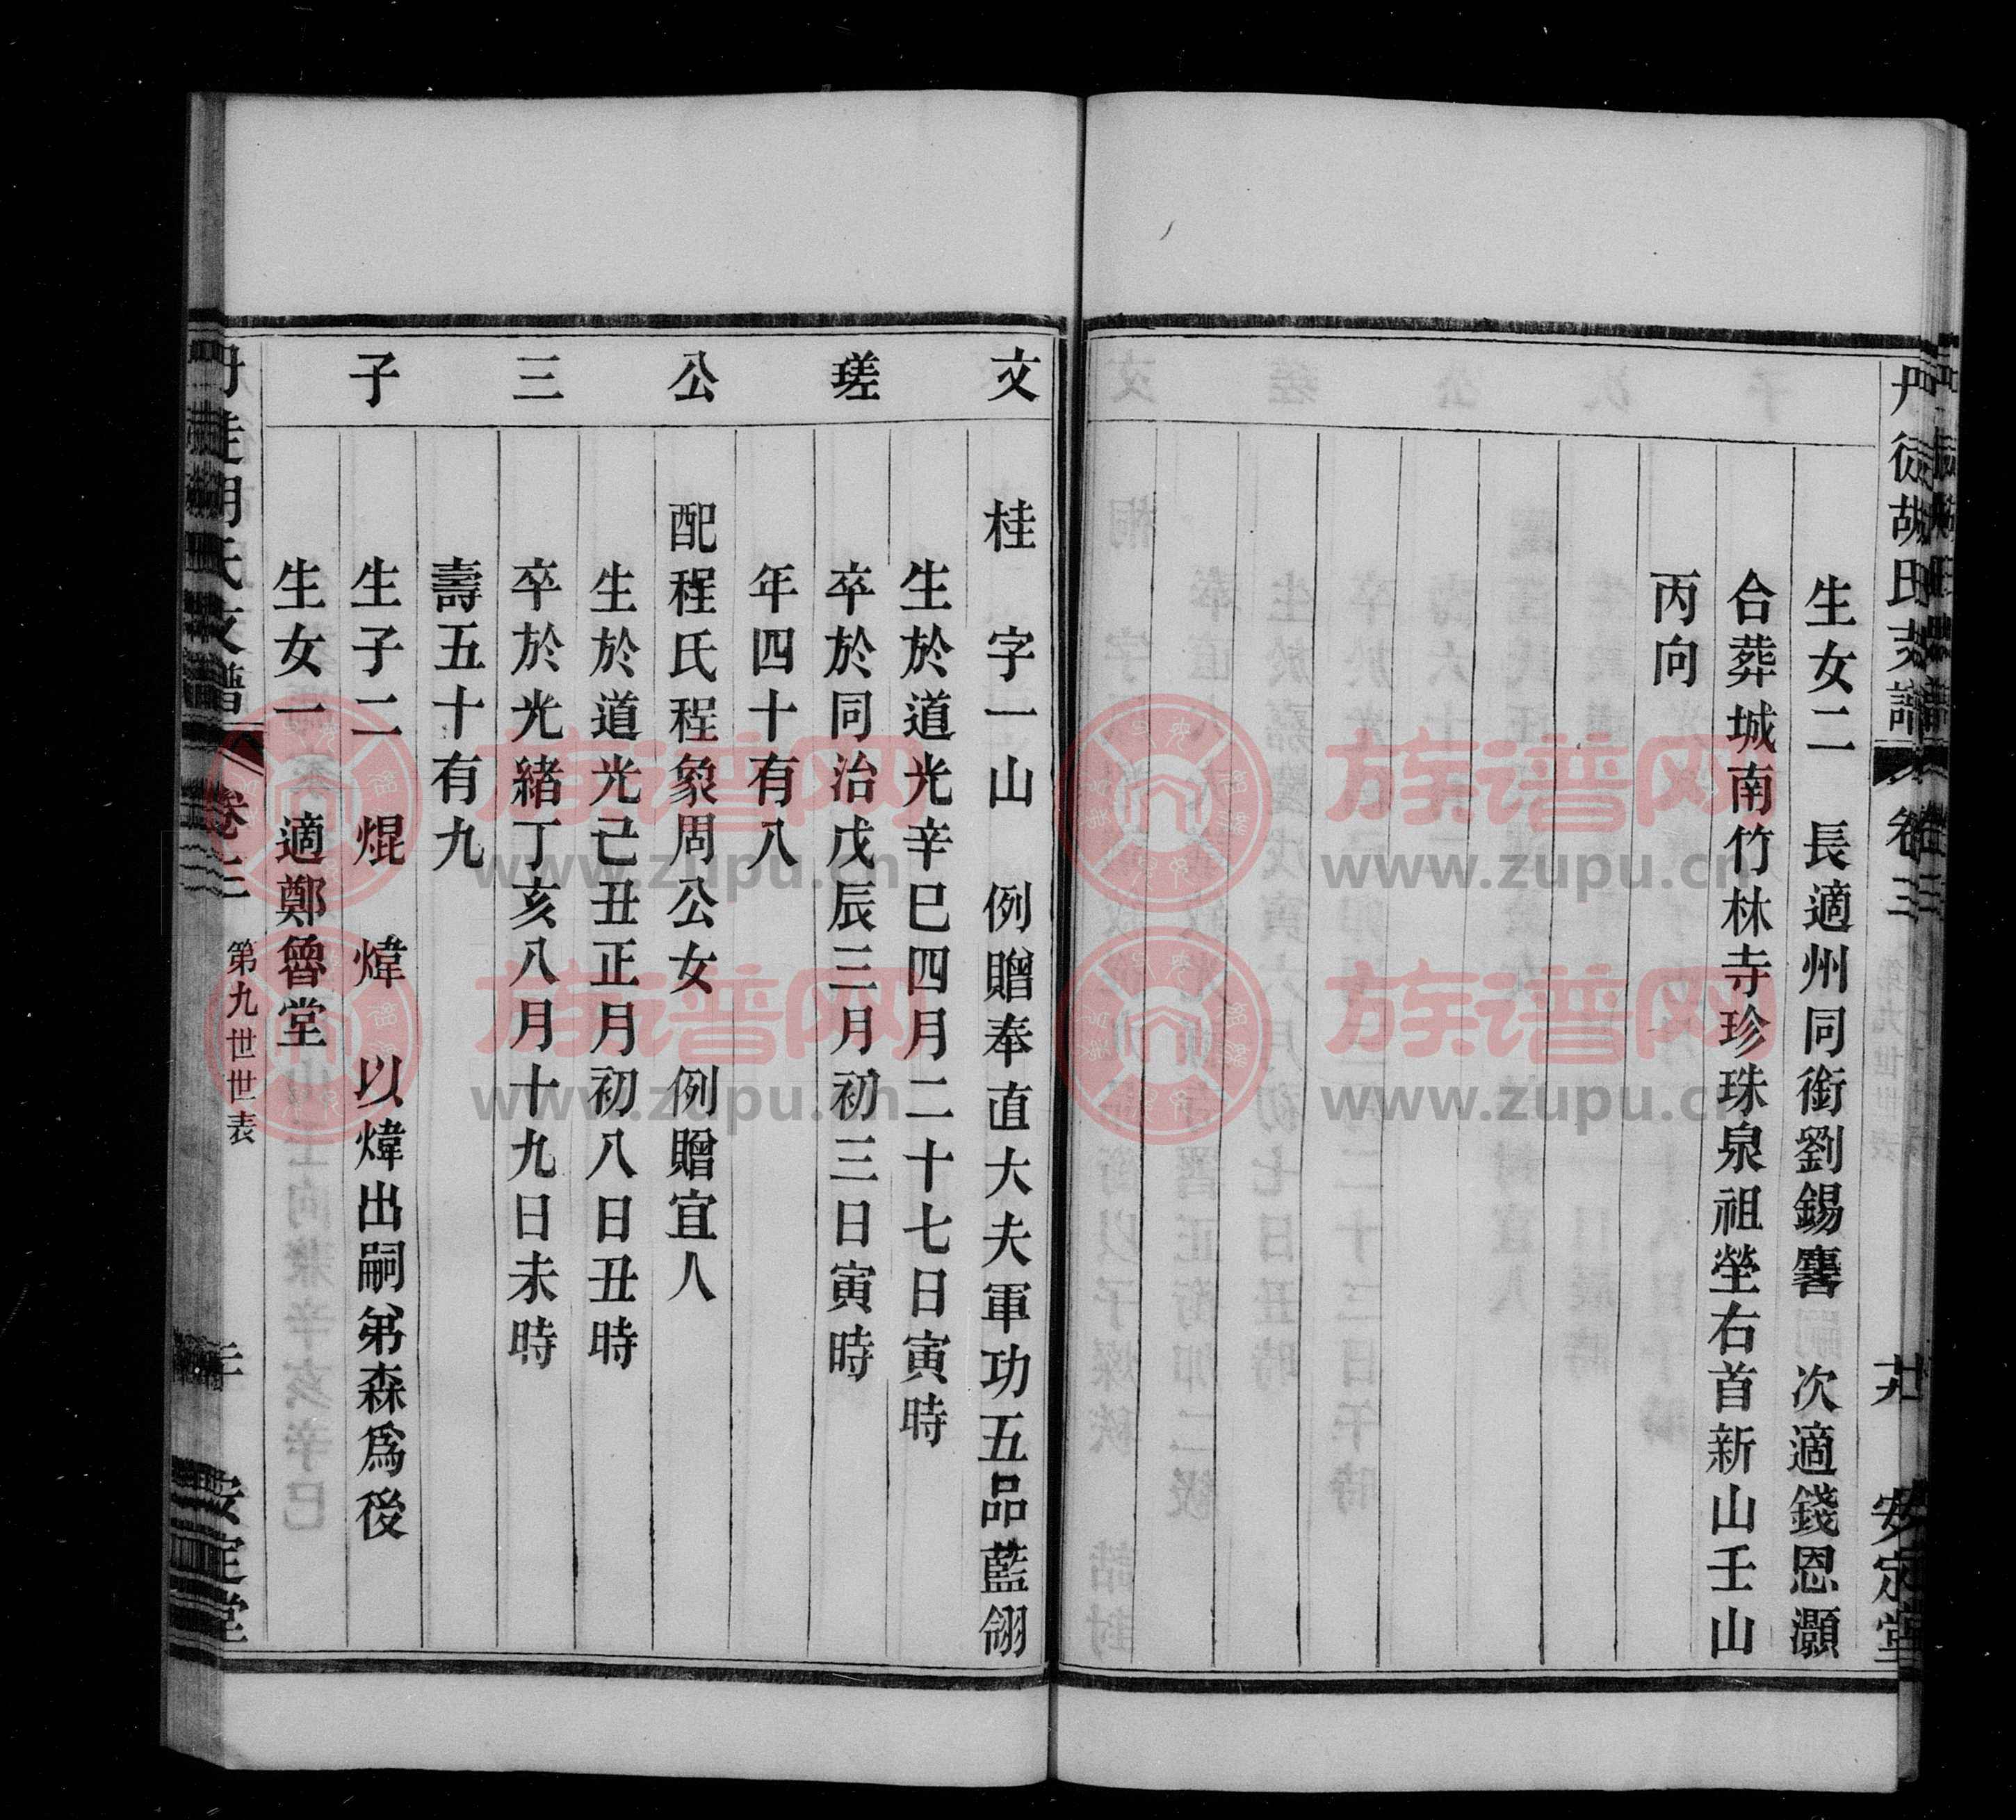 丹徒胡氏支譜 卷三 廿 安定堂
生女二 長適州同銜劉錫麐 次適錢恩灝
合葬城南竹林寺珍珠泉祖塋右首新山壬山
丙向
文瑳公三子
桂 字一山 例贈奉直大夫軍功五品藍翎
生於道光辛巳四月二十七日寅時
卒於同治戊辰三月初三日寅時
年四十有八
配程氏程象周公女 例贈宜人
生於道光己丑正月初八日丑時
卒於光緒丁亥八月十九日未時
壽五十有九
生子二 焜 煒 以煒出嗣弟森為後
生女一 適鄭魯堂
丹徒胡氏支譜 卷三 第九世世表 安定堂
族谱网
www.zupu.cn
族谱网
www.zupu.cn
族谱网
www.zupu.cn
族谱网
www.zupu.cn